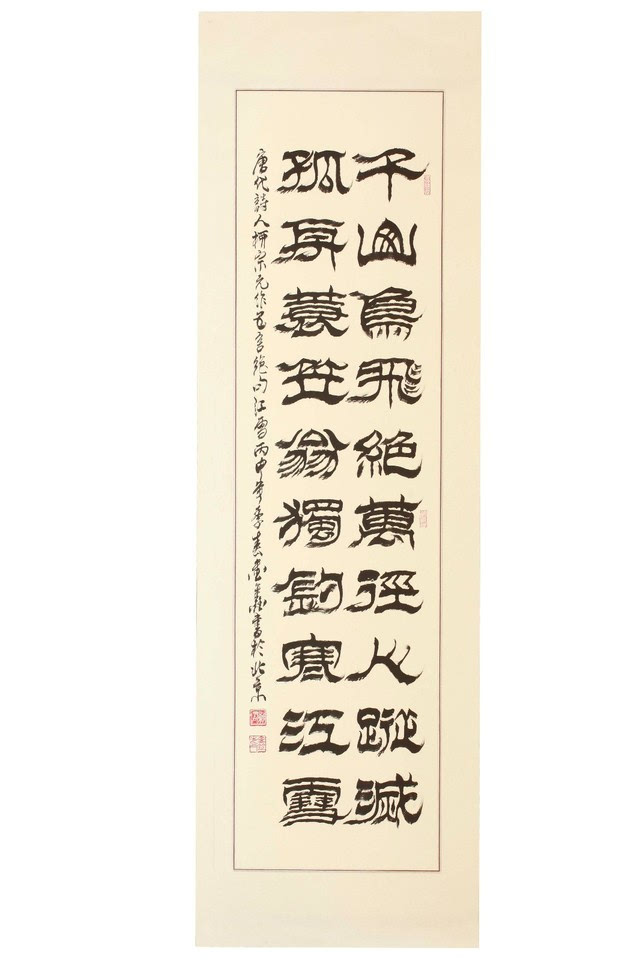 千山鳥飛絶萬徑人蹤滅
孤舟蓑笠翁獨釣寒江雪
唐代詩人柳宗元作五言絶句江雪丙申年季春書於北京